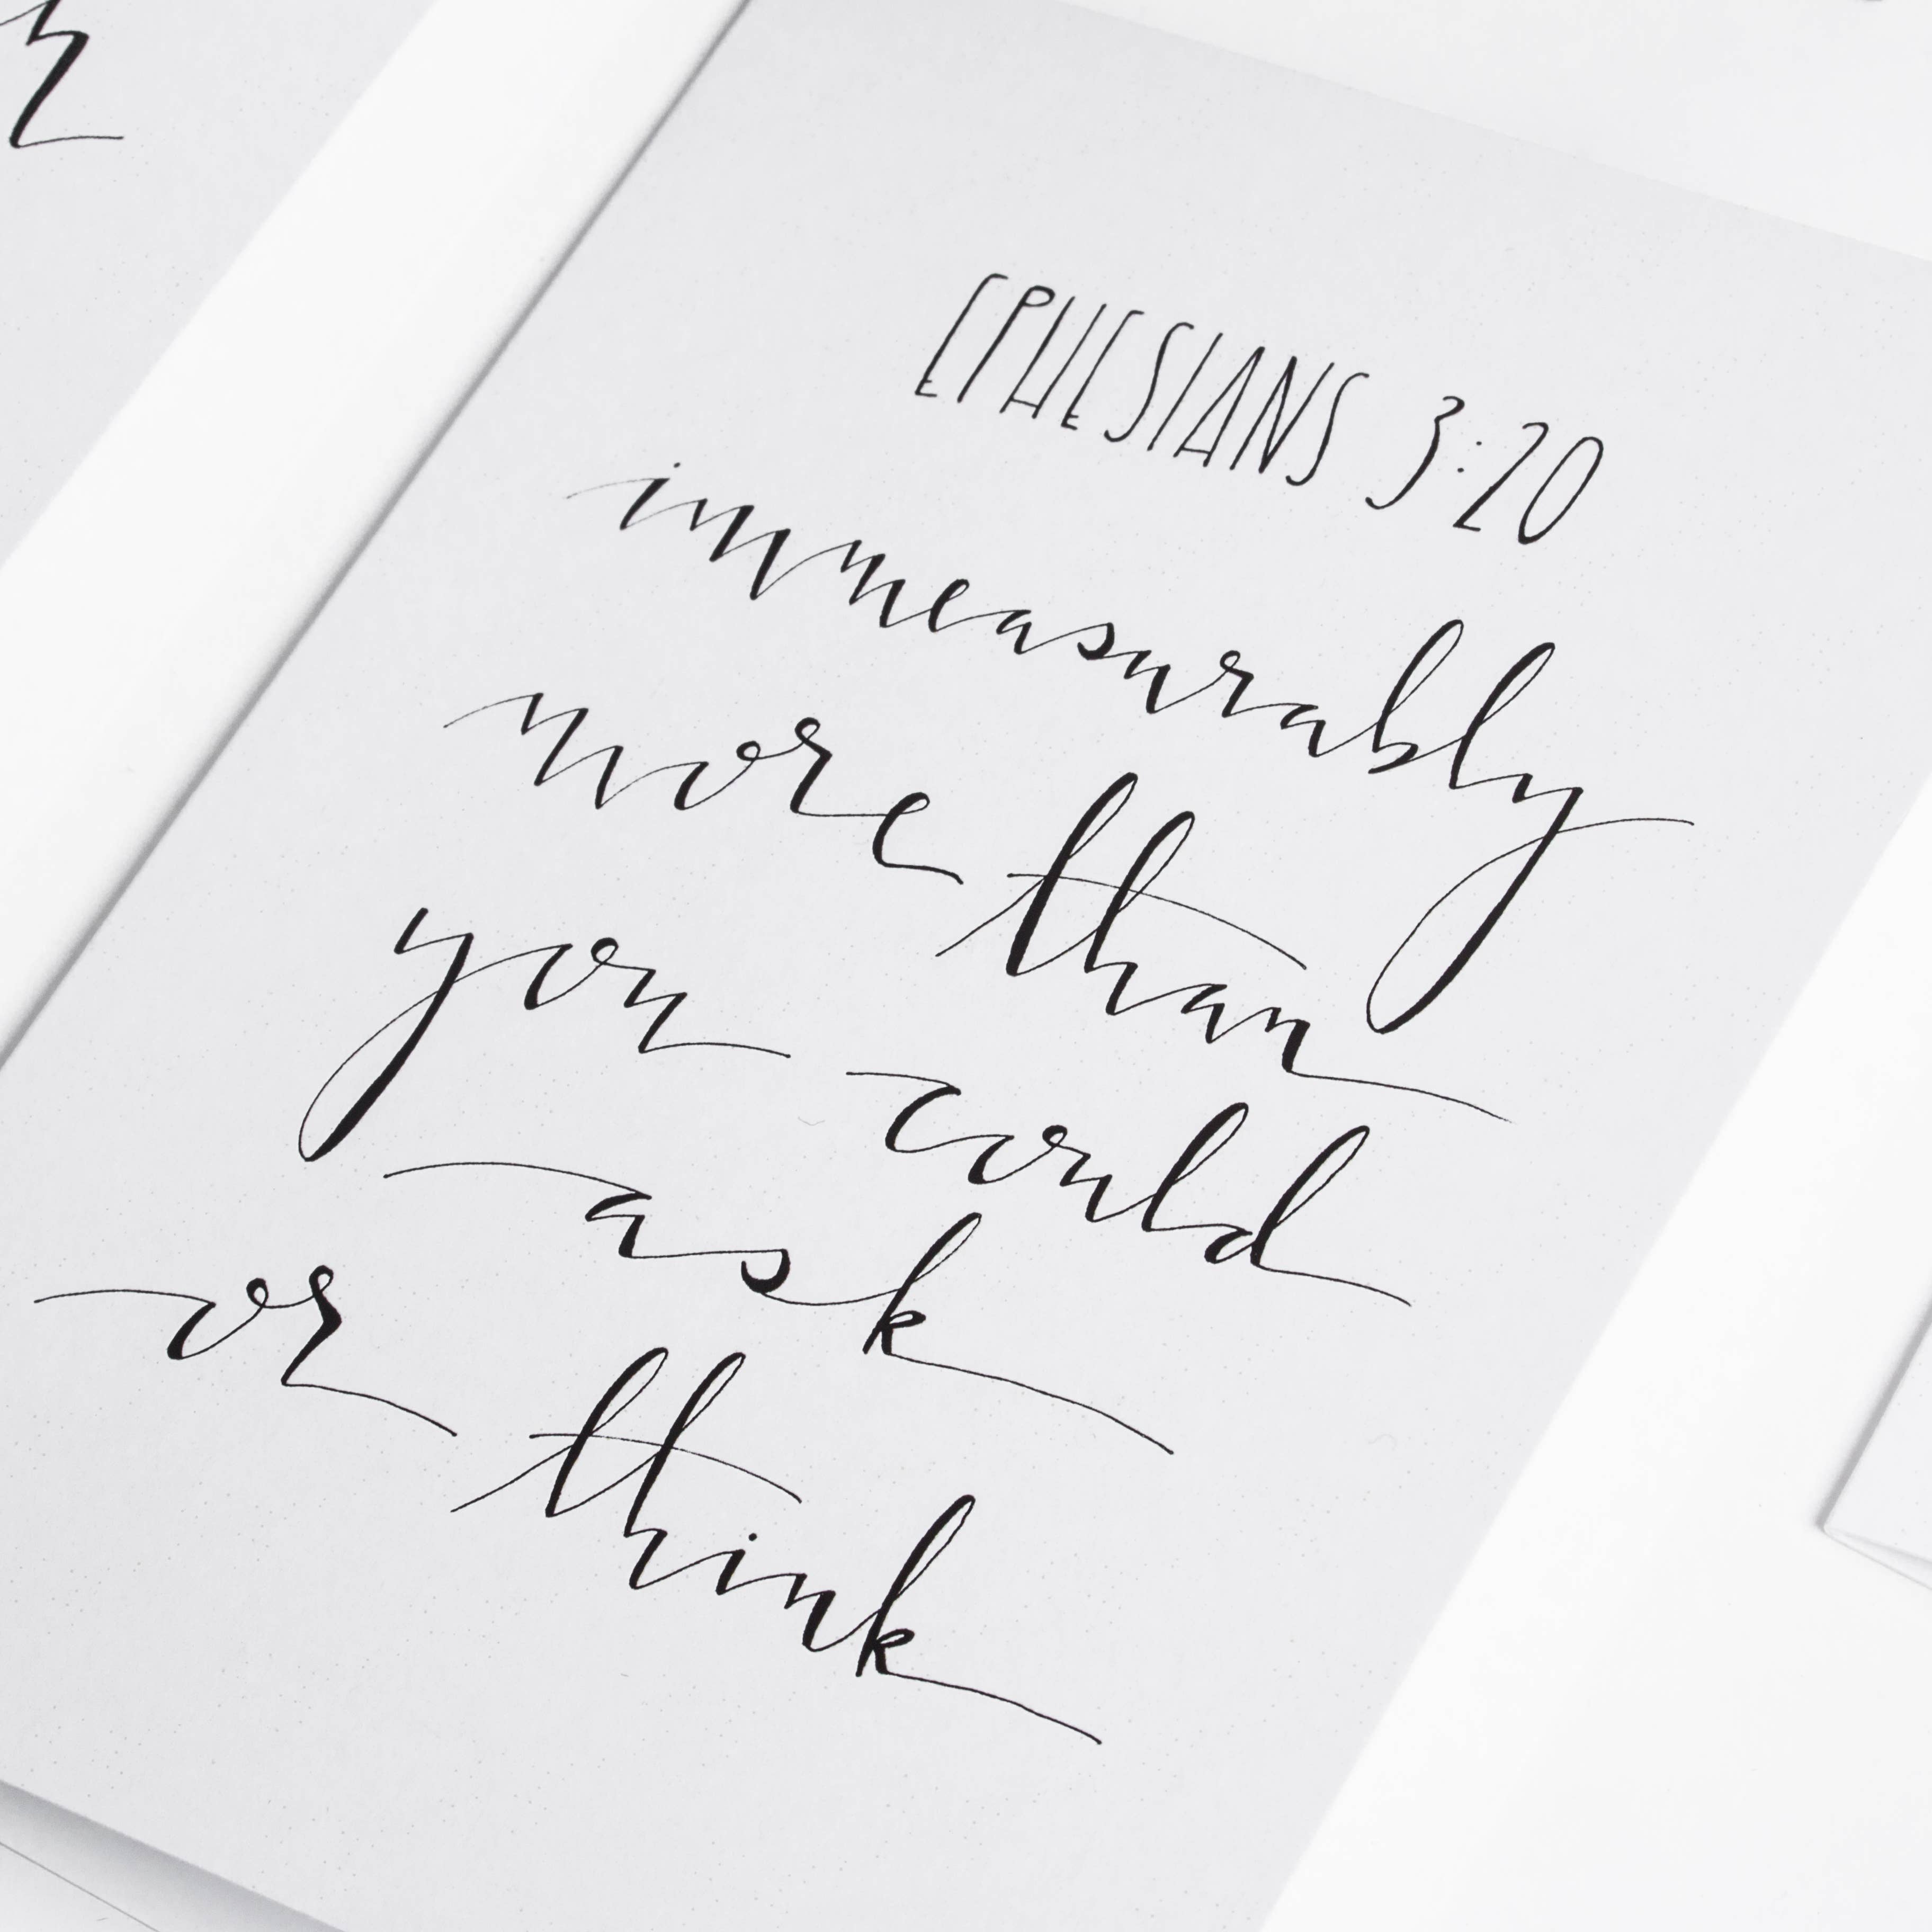 EPHESIANS 3:20
immeasurably
more than
you could
ask
or think